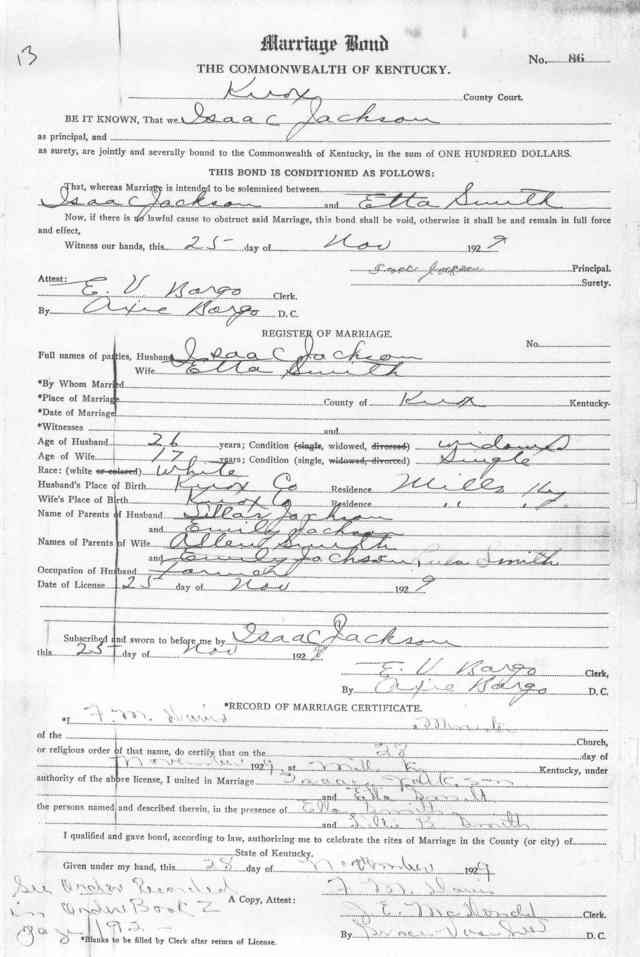 13
Marriage Bond
No. 86
THE COMMONWEALTH OF KENTUCKY.
Knox County Court.
BE IT KNOWN, That we Isaac Jackson
as principal, and
as surety, are jointly and severally bound to the Commonwealth of Kentucky, in the sum of ONE HUNDRED DOLLARS.
THIS BOND IS CONDITIONED AS FOLLOWS:
That, whereas Marriage is intended to be solemnized between
Isaac Jackson and Etta Smith
Now, if there is no lawful cause to obstruct said Marriage, this bond shall be void, otherwise it shall be and remain in full force
and effect,
Witness our hands, this 25 day of Nov 1929
Isaac Jackson Principal.
Attest: Surety.
E. V Bargo Clerk.
By Axie Bargo D. C.
REGISTER OF MARRIAGE.
No.
Full names of parties, Husband Isaac Jackson
Wife Etta Smith
*By Whom Married
*Place of Marriage County of Knox Kentucky.
*Date of Marriage
*Witnesses and
Age of Husband 26 years; Condition (single, widowed, divorced) widowed
Age of Wife 17 years; Condition (single, widowed, divorced) Single
Race: (white or colored) White
Husband's Place of Birth Knox Co Residence Mills Ky
Wife's Place of Birth Knox Co Residence " "
Name of Parents of Husband Jackson
and Emily Jackson
Names of Parents of Wife Allen Smith
and Emily Jackson Smith
Occupation of Husband Farmer
Date of License 25 Nov 1929
Subscribed and sworn to before me by Isaac Jackson
this 25 day of Nov 192
E. V Bargo Clerk,
By Axie Bargo D. C.
*RECORD OF MARRIAGE CERTIFICATE.
*I F. M. Minister
of the Church,
or religious order of that name, do certify that on the 28 day of
November 1929, at Mills Ky Kentucky, under
authority of the above license, I united in Marriage Isaac Jackson
and Etta Smith
the persons named and described therein, in the presence of Smith
and Lillie B. Smith
I qualified and gave bond, according to law, authorizing me to celebrate the rites of Marriage in the County (or city) of
State of Kentucky.
Given under my hand, this 28 day of November 1929
F. M.
See Order Recorded
in Order Book Z
Page 192
A Copy, Attest: J. E. Clerk.
By D. C.
*Blanks to be filled by Clerk after return of License.